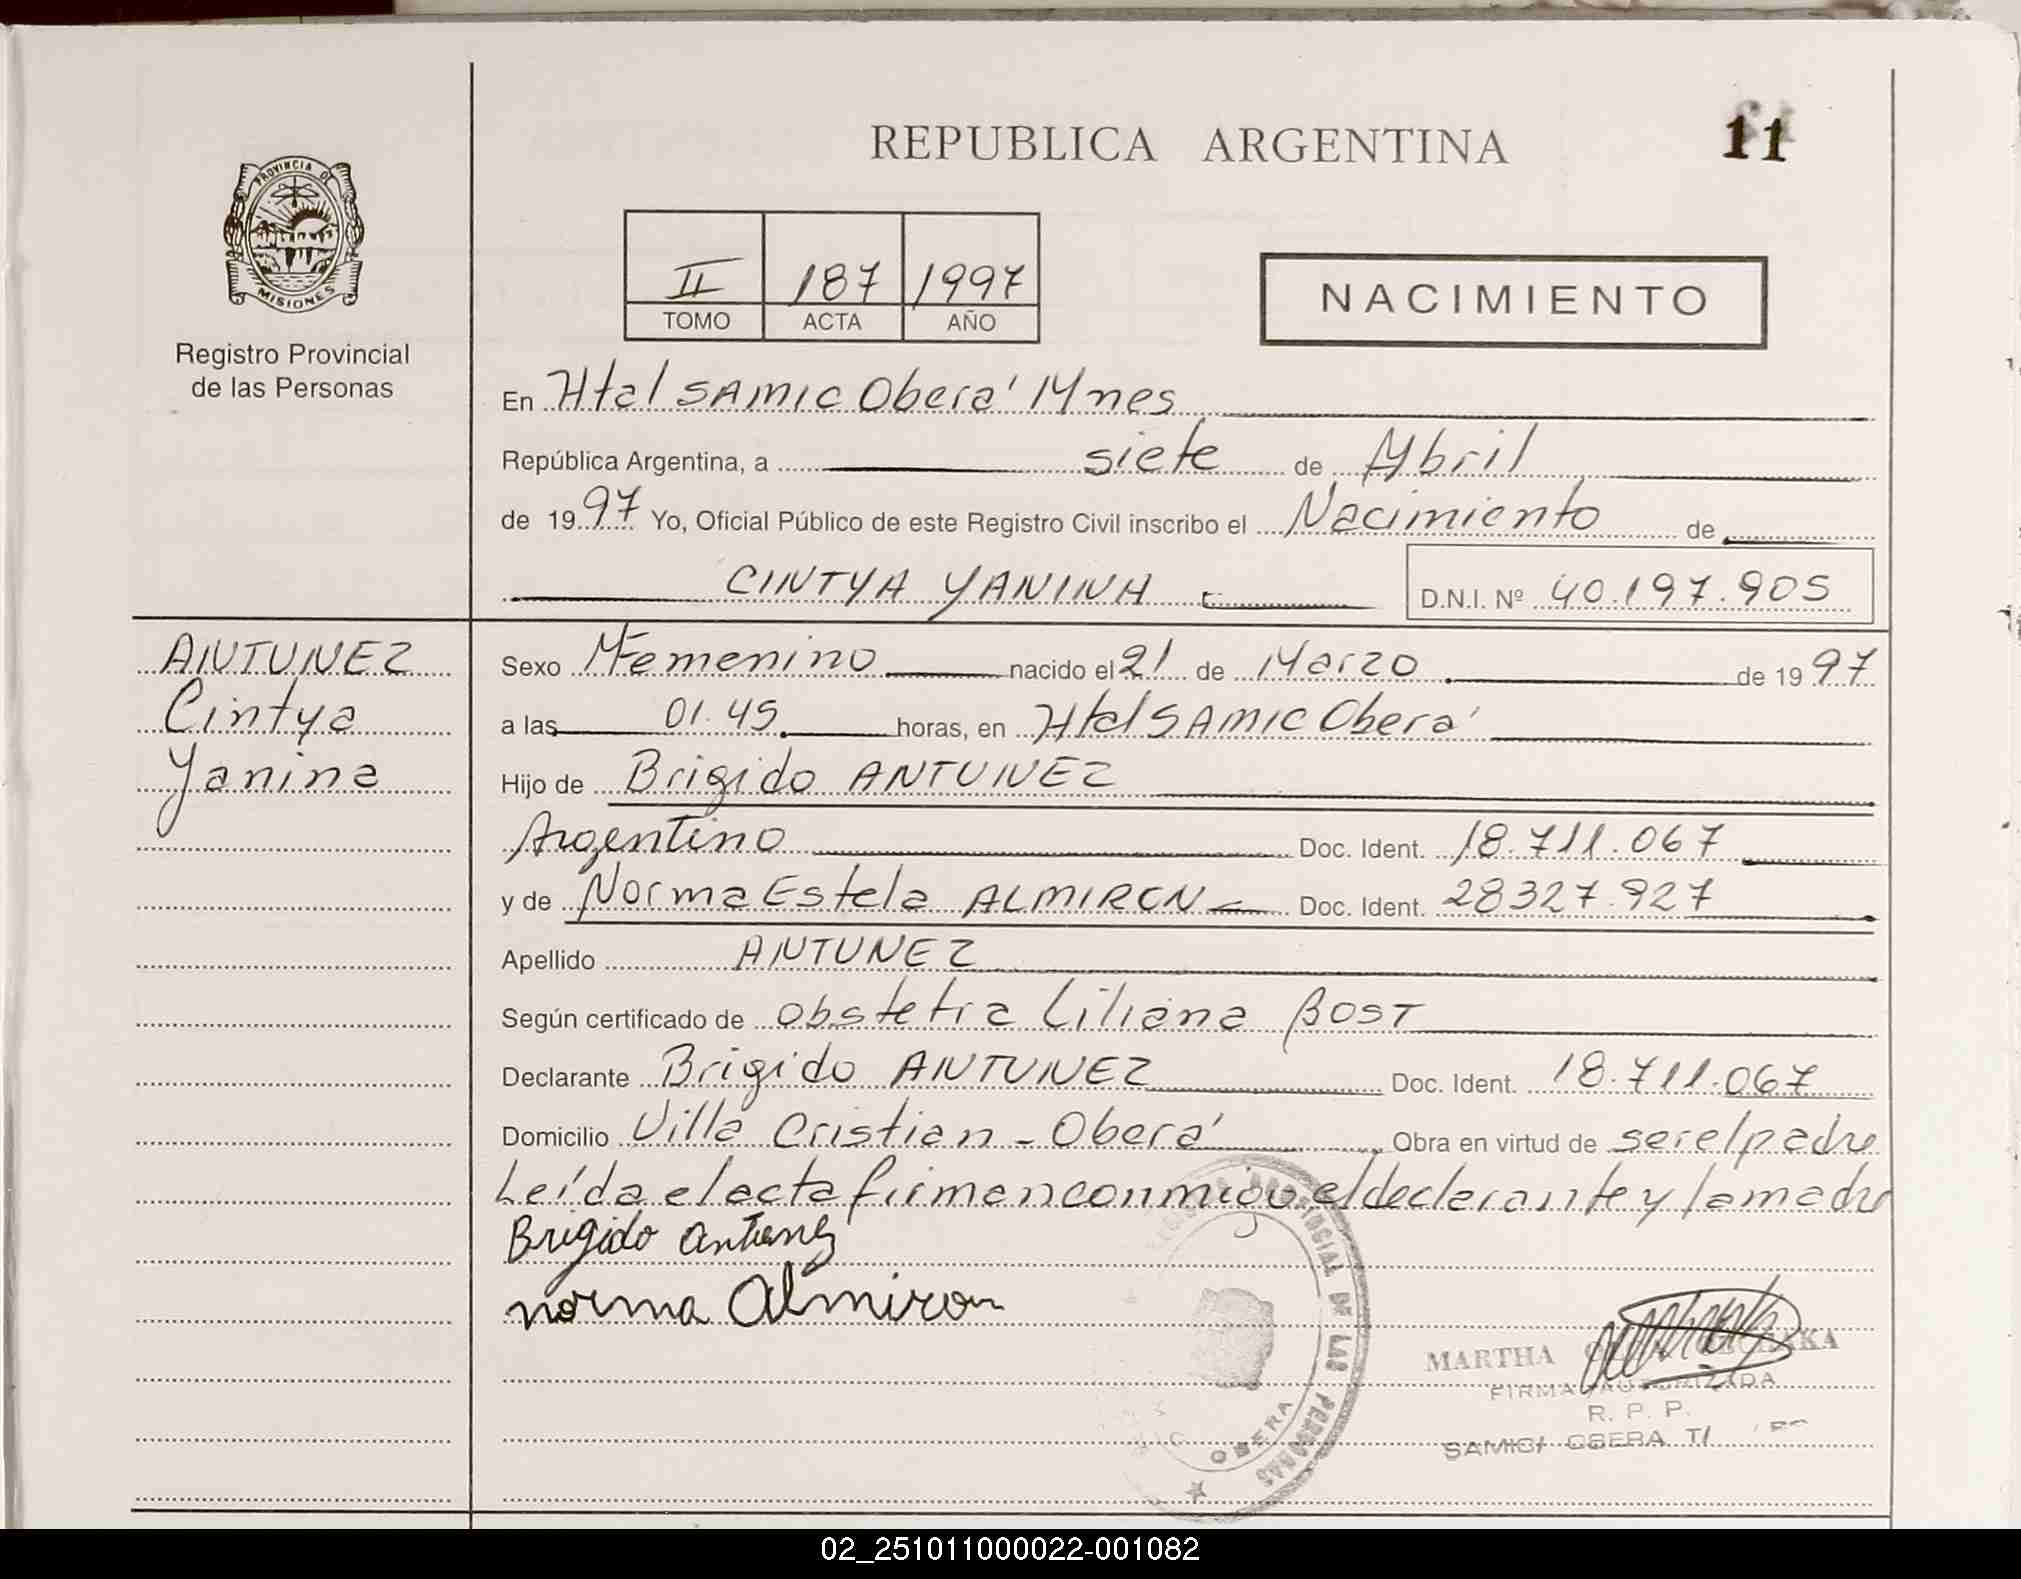 REPUBLICA ARGENTINA
11
PROVINCIA DE
MISIONES
Registro Provincial
de las Personas
II 187 1997
TOMO ACTA AÑO
NACIMIENTO
En Htal SAMIC Oberá Mnes
República Argentina, a siete de Abril
de 1997 Yo, Oficial Público de este Registro Civil inscribo el Nacimiento de
CINTYA YANINA
D.N.I. Nº 40.197.905
ANTUNEZ
Cintya
Yanina
Sexo Femenino nacido el 21 de Marzo de 1997
a las 01.45 horas, en Htal SAMIC Oberá
Hijo de Brigido ANTUNEZ
Argentino Doc. Ident. 18.711.067
y de Norma Estela ALMIRON Doc. Ident. 28327.927
Apellido ANTUNEZ
Según certificado de Obstetra Liliana BOST
Declarante Brigido ANTUNEZ Doc. Ident. 18.711.067
Domicilio Villa Cristian - Oberá Obra en virtud de ser el padre
Leída el acta firman conmigo el declarante y la madre
Brigido Antunez
norma Almiron
PROVINCIAL DE LAS PERSONAS
OBERA
MARTHA
FIRMA AUTORIZADA
R. P. P.
SAMIC/ OBERA
02_251011000022-001082